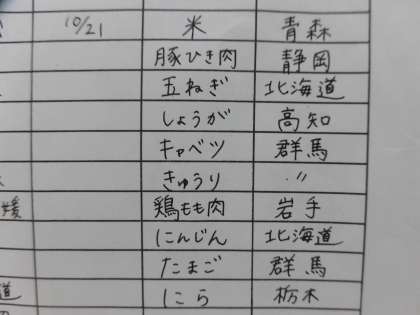 10/21 米 青森
豚ひき肉 静岡
玉ねぎ 北海道
しょうが 高知
キャベツ 群馬
きゅうり 〃
媛 鶏もも肉 岩手
にんじん 北海道
たまご 群馬
道 にら 栃木